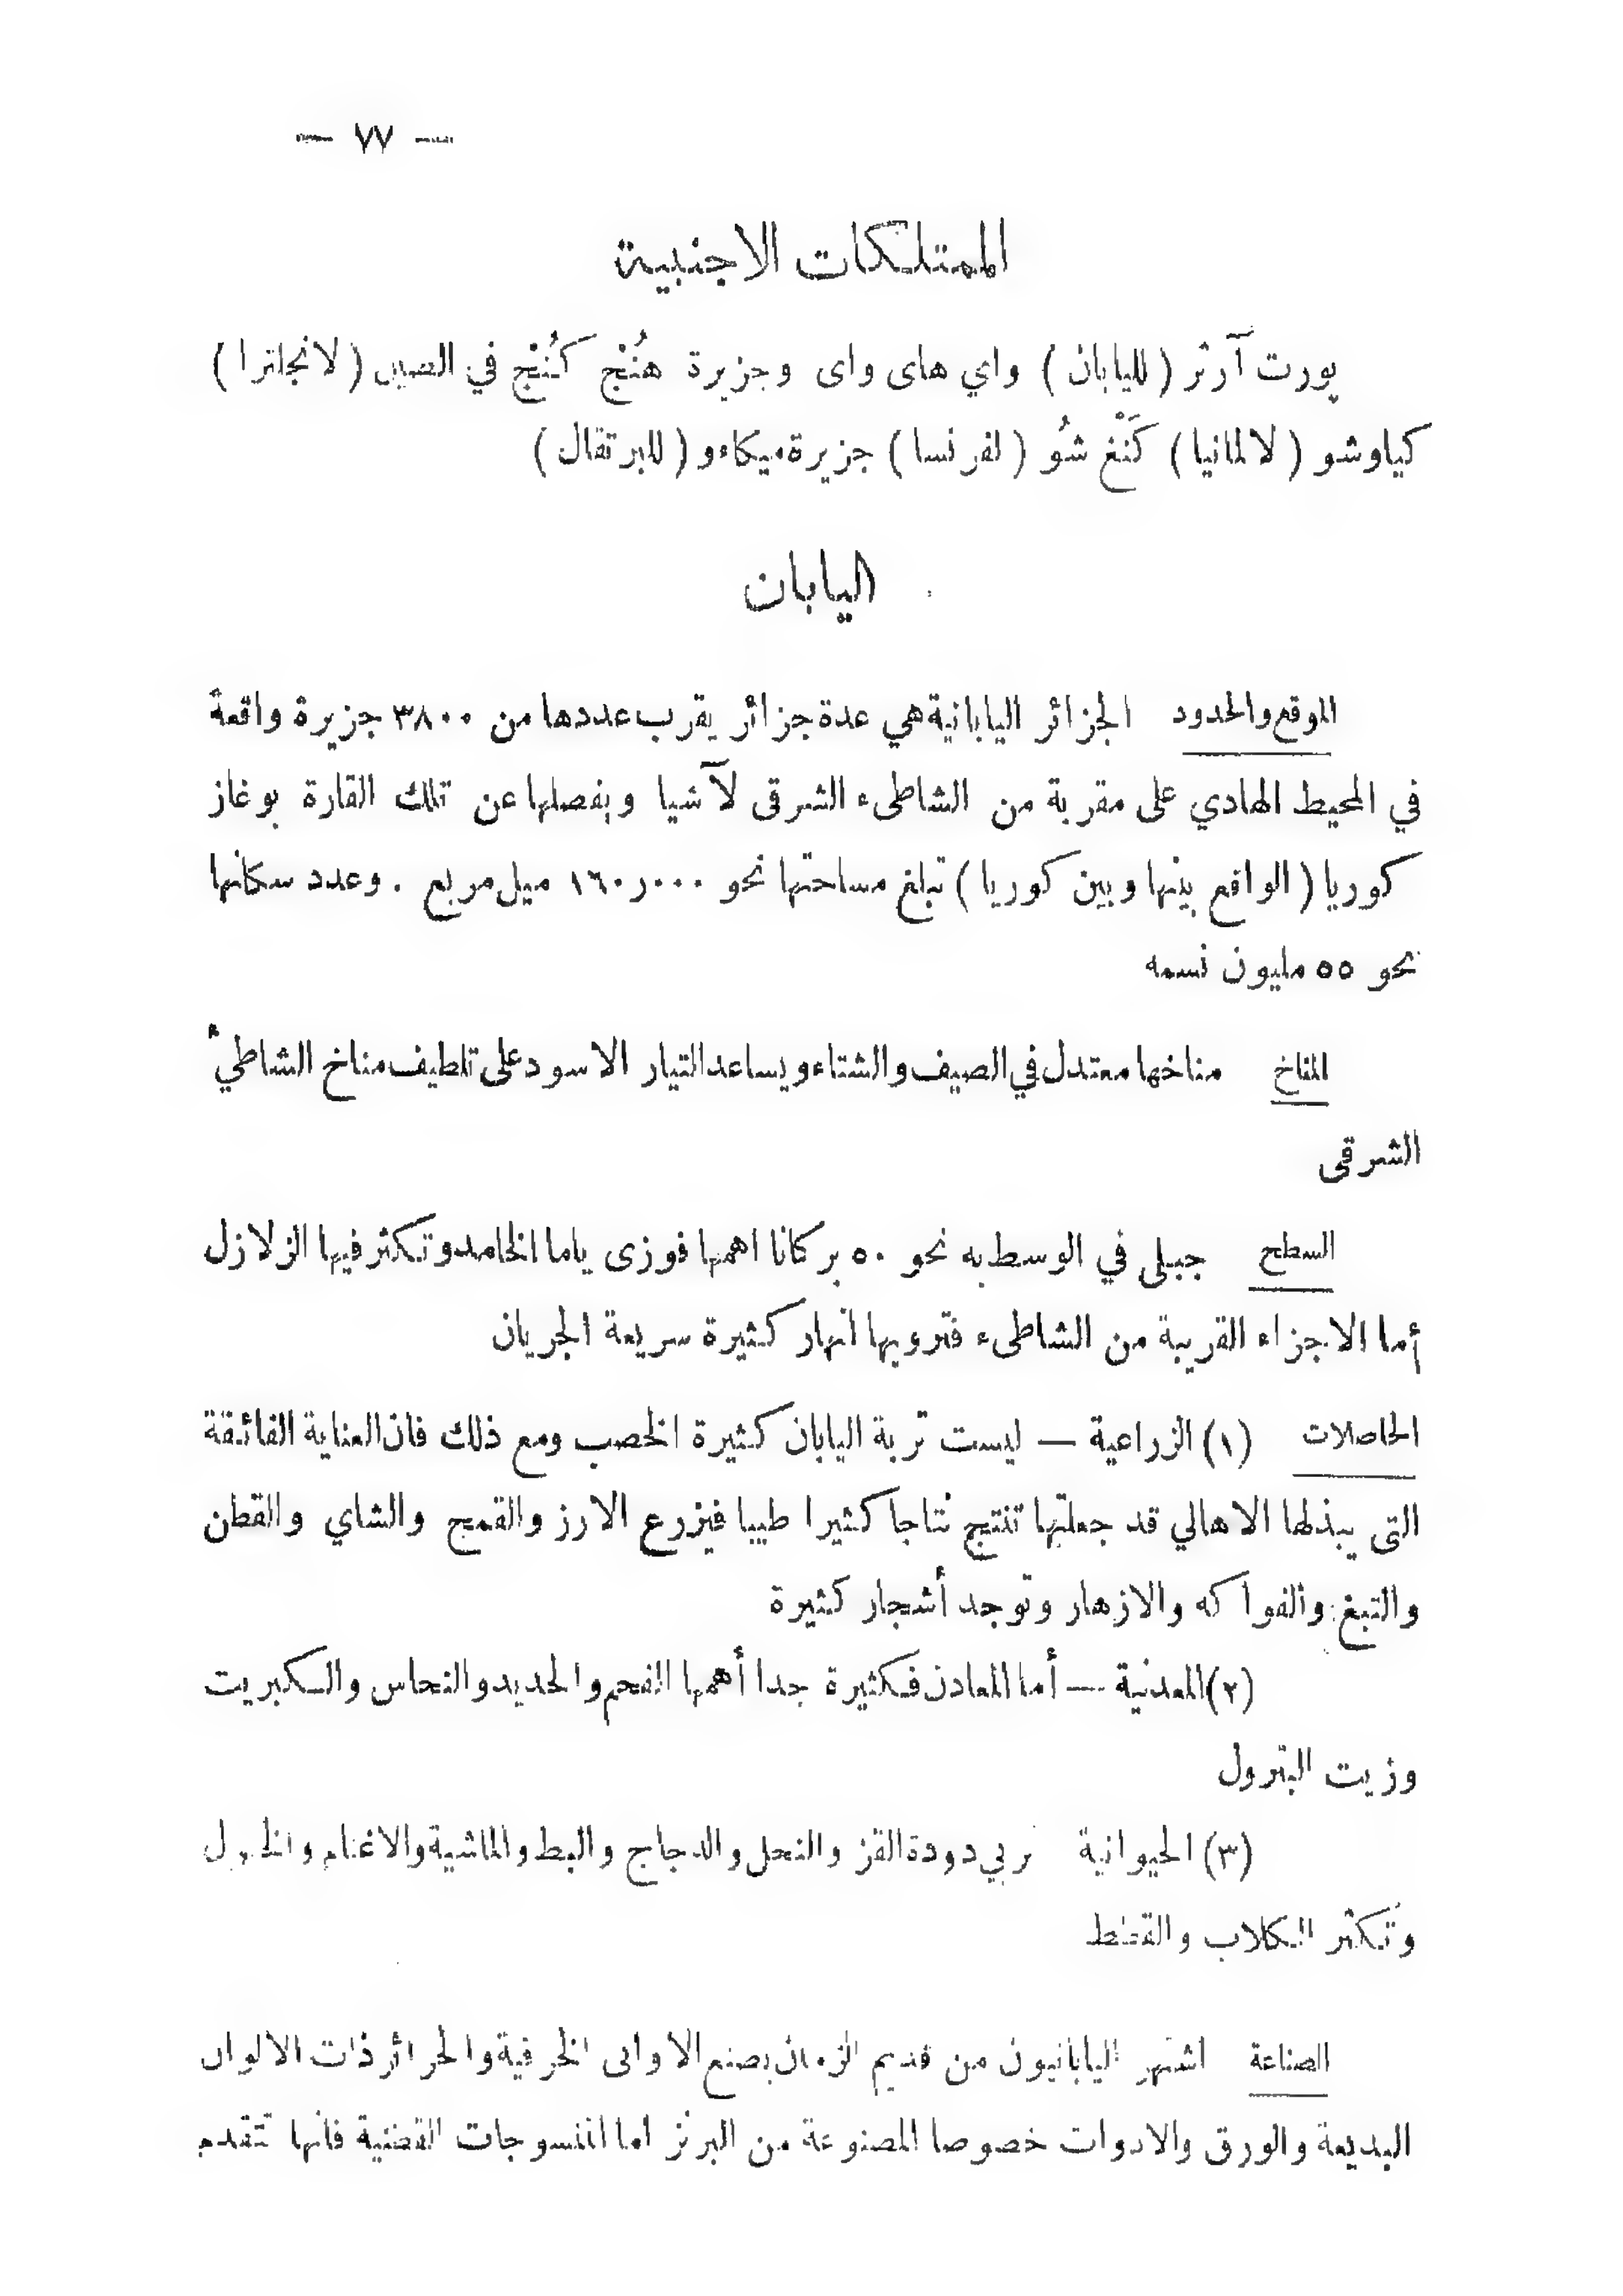 — ٧٧ —
الممتلكات الاجنبية
پورت آرثر ( لليابان ) واي هاى واى وجزيرة هُنْج كُنْج في الصين ( لانجلترا )
كياوشو ( لالمانيا ) كَنْغ شُو ( لفرنسا ) جزيرة ميكاءو ( للبرتقال )
اليابان
الموقع والحدود الجزائر اليابانية هي عدة جزائر يقرب عددها من ٣٨٠٠ جزيرة واقعة
في المحيط الهادي على مقربة من الشاطىء الشرقى لآسيا ويفصلها عن تلك القارة بوغاز
كوريا ( الواقع بينها وبين كوريا ) تبلغ مساحتها نحو ١٦٠٫٠٠٠ ميل مربع . وعدد سكانها
نحو ٥٥ مليون نسمه
المناخ مناخها معتدل في الصيف والشتاء ويساعد التيار الاسود على تلطيف مناخ الشاطئ
الشرقى
السطح جبلى في الوسط به نحو ٥٠ بركانا اهمها فوزى ياما الخامد وتكثر فيها الزلازل
أما الاجزاء القريبة من الشاطىء فترويها انهار كثيرة سريعة الجريان
الحاصلات (١) الزراعية — ليست تربة اليابان كثيرة الخصب ومع ذلك فان العناية الفائقة
التى يبذلها الاهالي قد جعلتها تنتج نتاجا كثيرا طيبا فيزرع الارز والقمح والشاي والقطن
والتبغ والفواكه والازهار وتوجد أشجار كثيرة
(٢) المعدنية — أما المعادن فكثيرة جدا أهمها الفحم والحديد والنحاس والكبريت
وزيت البترول
(٣) الحيوانية تربي دودة القز والنحل والدجاج والبط والماشية والاغنام والخيول
وتكثر الكلاب والقطط
الصناعة اشتهر اليابانيون من قديم الزمان بصنع الاوانى الخزفية والحرائر ذات الالوان
البديعة والورق والادوات خصوصا المصنوعة من البرنز اما المنسوجات القطنية فانها تتقدم